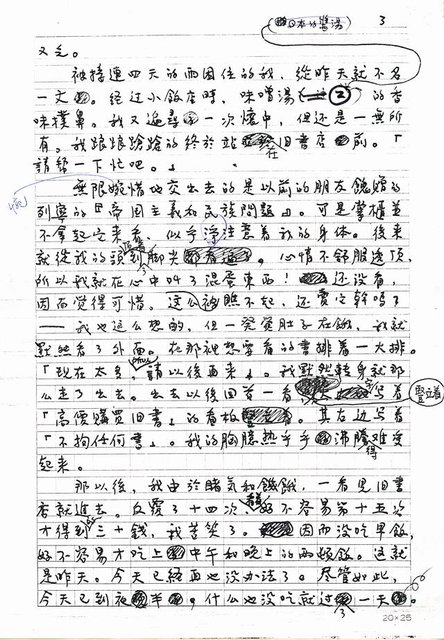 日本的醬湯 3
又乞。
被接連四天的雨困住的我，從昨天就不名
一文。经过小飯店時，味噌湯②的香
味撲鼻。我又遍尋一次懷中，但还是一無所
有。我踉踉蹌蹌的終於站在旧書店前。「
請幫一下忙吧。」
無限婉惜地交出去的是以前的朋友餽贈的
列寧的『帝國主義和民族問題』。可是掌櫃並
不拿起它來看，似乎注意着我的身体。後來
就從我的頭到脚尖。心情不舒服透頂，
所以我就在心中叫了混蛋東西！还沒看，
因而觉得可惜。这么被瞧不起，还賣它幹嗎？
——我也这么想的，但一覚覚肚子在餓，我就
默然看了外面。在那裡想要看的書排着一大排。
「現在太多，請以後再來」。我默然轉身就那
么走了出去。出去以後回首一看写着
豎立着
「高價購買旧書」的看板。其右边写着
「不拘任何書」。我的胸膛熱乎乎沸騰得難受
起來。
那以後，我由於賭気和饑餓，一看見旧書
店就進去。反覆了十四次，好不容易第十五次
才得到三十錢，我苦笑了。因而没吃早飯，
好不容易才吃上中午和晚上的两頓飯。这就
是昨天。今天已经再也没办法了。尽管如此，
今天已到夜半，什么也没吃就过了一天。
20×25